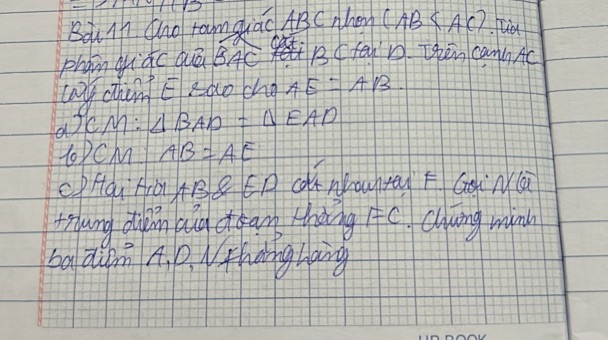 Bài 11. Cho tam giác ABC nhọn (AB < AC). Tia
phân giác của BAC cắt BC tại D. Trên cạnh AC
lấy điểm E sao cho AE = AB.
a) CM: Δ BAD = Δ EAD
b) CM: AB = AE
c) Hai tia AB & ED cắt nhau tại F. Gọi N là
trung điểm của đoạn thẳng FC. Chứng minh
ba điểm A, D, N thẳng hàng